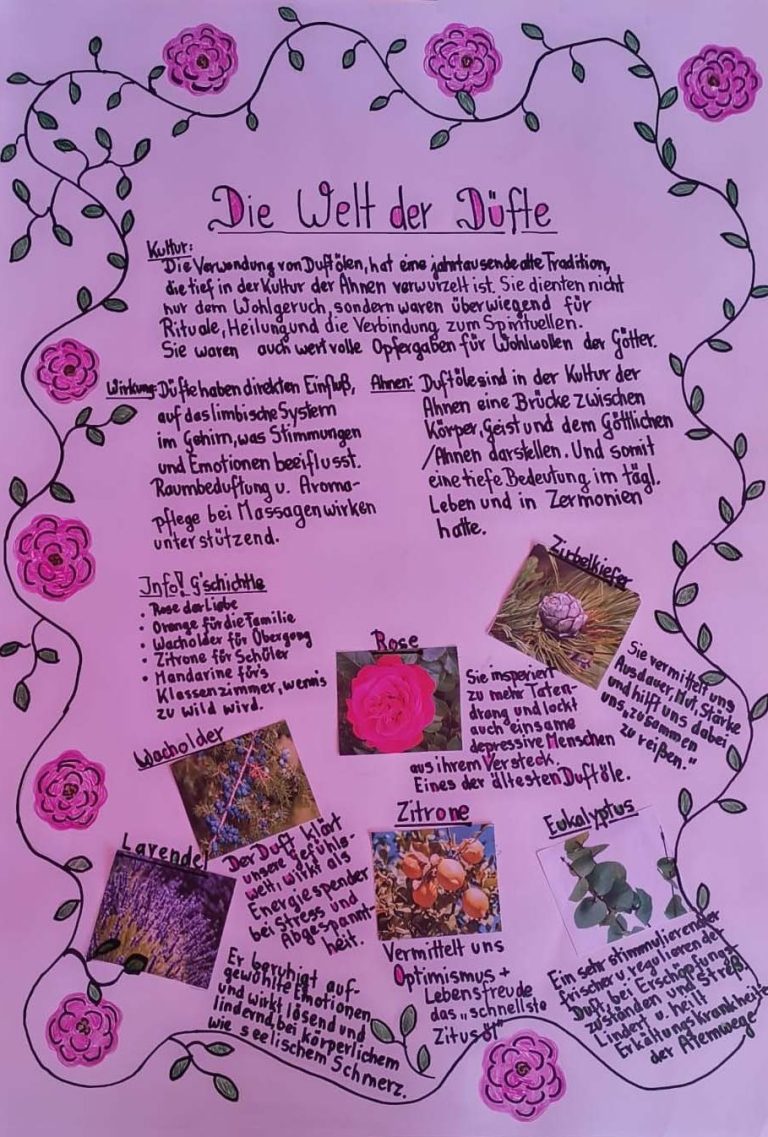 Die Welt der Düfte
Kultur:
Die Verwendung von Duftölen, hat eine jahrtausende alte Tradition,
die tief in der Kultur der Ahnen verwurzelt ist. Sie dienten nicht
nur dem Wohlgeruch, sondern waren überwiegend für
Rituale, Heilung und die Verbindung zum Spirituellen.
Sie waren auch wertvolle Opfergaben für Wohlwollen der Götter.
Wirkung: Düfte haben direkten Einfluß,
auf das limbische System
im Gehirn, was Stimmungen
und Emotionen beeiflusst.
Raumbeduftung u. Aroma-
pflege bei Massagen wirken
unterstützend.
Ahnen: Duftöle sind in der Kultur der
Ahnen eine Brücke zwischen
Körper, Geist und dem Göttlichen
/Ahnen darstellen. Und somit
eine tiefe Bedeutung im tägl.
Leben und in Zermonien
hatte.
Info! G'schichtle
• Rose der Liebe
• Orange für die Familie
• Wacholder für Übergang
• Zitrone för Schüler
• Mandarine förs
Klassenzimmer, wenns
zu wild wird.
Zirbelkiefer
Sie vermittelt uns
Ausdauer, Mut, Stärke
und hilft uns dabei
uns „zusammen
zu reißen."
Rose
Sie insperiert
zu mehr Taten-
drang und lockt
auch einsame
depressive Menschen
aus ihrem Versteck.
Eines der ältesten Duftöle.
Wacholder
Der Duft klärt
unsere Gefühls-
welt, wirkt als
Energiespender
bei Stress und
Abgespannt-
heit.
Lavendel
Er beruhigt auf-
gewühlte Emotionen
und wirkt lösend und
lindernd, bei körperlichem
wie seelischem Schmerz.
Zitrone
Vermittelt uns
Optimismus +
Lebensfreude
das „schnellste
Zitusöl"
Eukalyptus
Ein sehr stimmulierender
frischer u. regulierender
Duft, bei Erschöpfungs-
zuständen und Streß.
Lindert u. heilt
Erkältungskrankheiten
der Atemwege